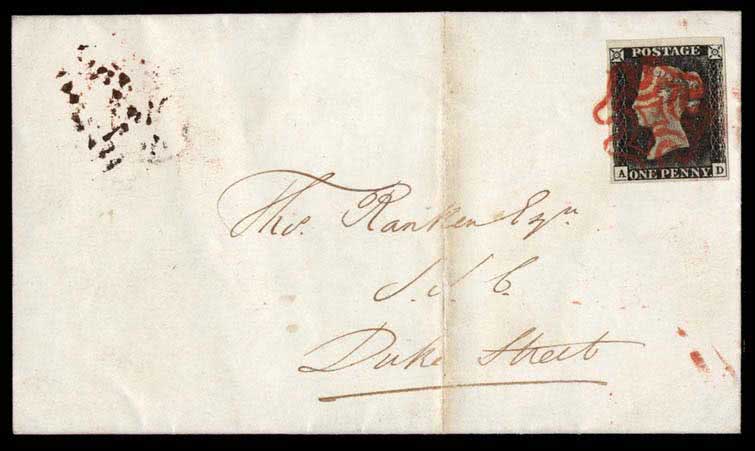 POSTAGE
A ONE PENNY D
Thos. Ranken Esqr.
S. S. C.
Duke Street